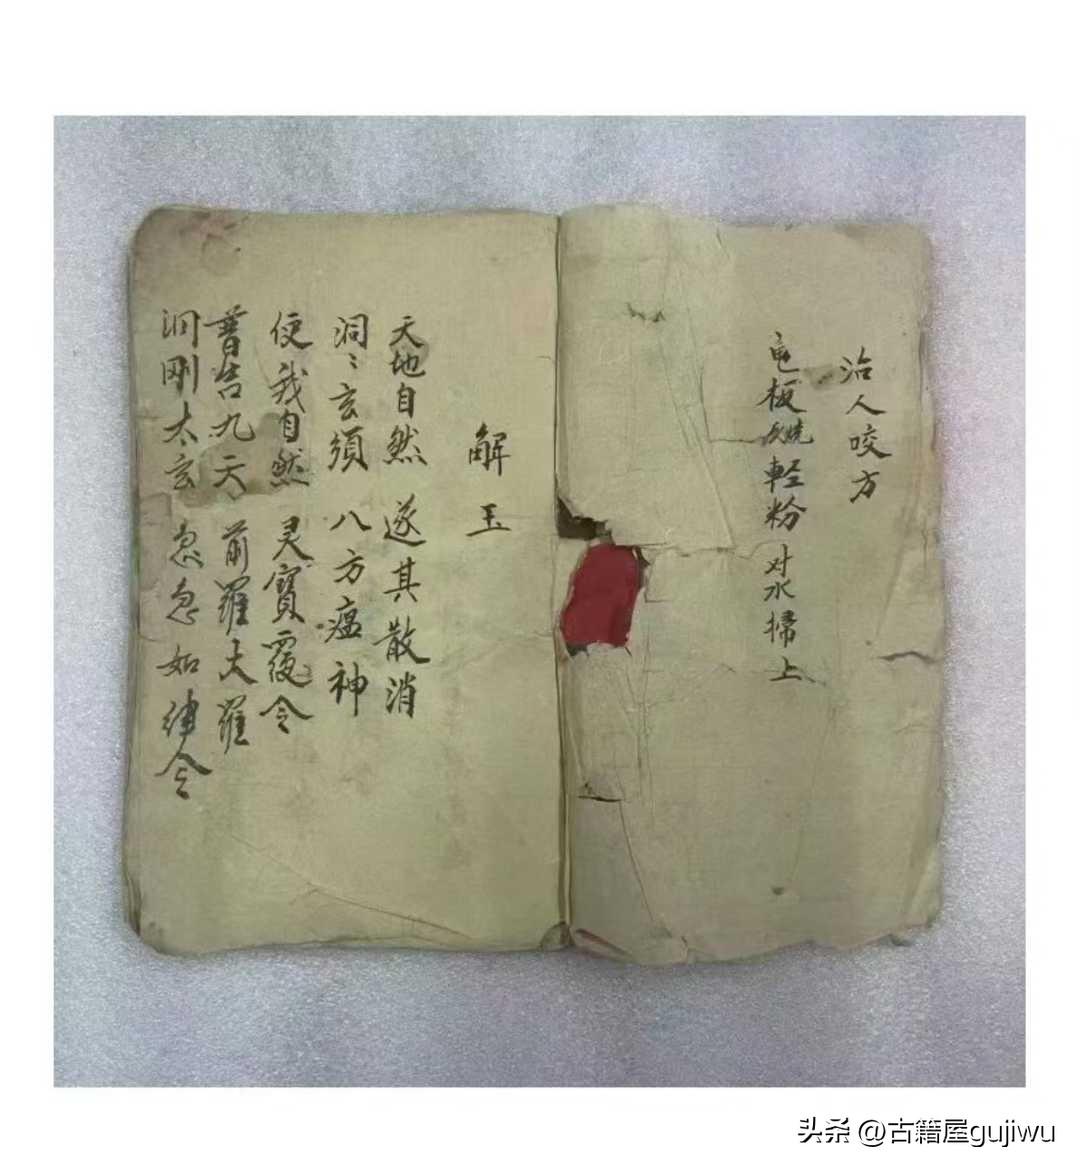 治人咬方
龟板火燒輕粉对水掃上
解玉
天地自然 遂其散消
洞〻玄須 八方瘟神
使我自然 灵寶覆令
普告九天 前羅大羅
洞刚太玄 急急如律令
头条 @古籍屋gujiwu